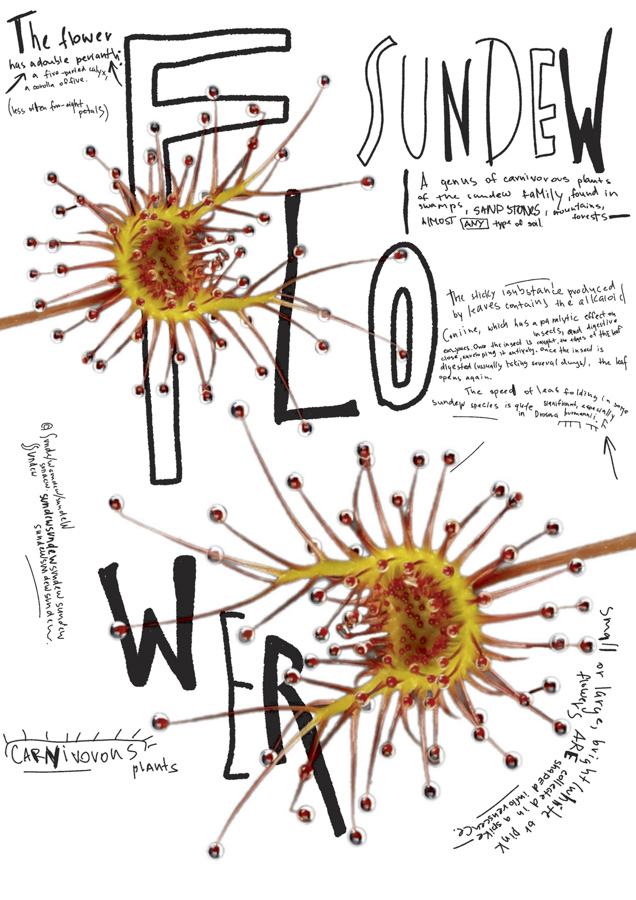 The flower
has a double perianth:
a five-parted calyx,
a corolla of five.
(less often four-eight
petals)
SUNDEW
A genus of carnivorous plants
of the sundew family, found in
swamps, SAND STONES, mountains,
forests
ALMOST ANY type of soil.
FLO
WER
The sticky substance produced
by leaves contains the alkaloid
Coniine, which has a paralytic effect on
insects, and digestive
enzymes. Once the insect is caught, the edges of the leaf
close, enveloping it entirely. Once the insect is
digested (usually taking several days), the leaf
opens again.
The speed of leaf folding in some
sundew species is quite significant, especially
in Drosera
sundew
sundewsundewsundew sundew
sundewsundewsundew.
CARNivorous
plants
Small or large, bright (white or pink
flowers ARE collected in a spike
shaped inflorescence.